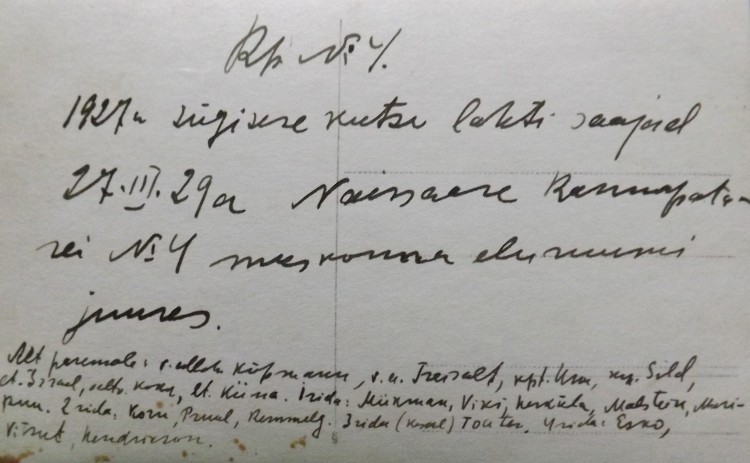 Rp. № 4.
1927a sügisese kutse lahti saajad
27.III.29a Naissaare Rannapata-
rei № 4 meeskonna eluruumi
juures.
Alt paremale: v.allohv , v.a. Treisalt, kpt. Urm, Sild,
lt. Iisrael, Koha, lt. Kiina. I rida: Miikman, Viks, Herküla, Malstein, Mari-
puu. 2 rida: Koru, Pruul, Remmelg. 3 rida (kesel) Touter, 4 rida: Esko,
Viirut, Hendrikson.